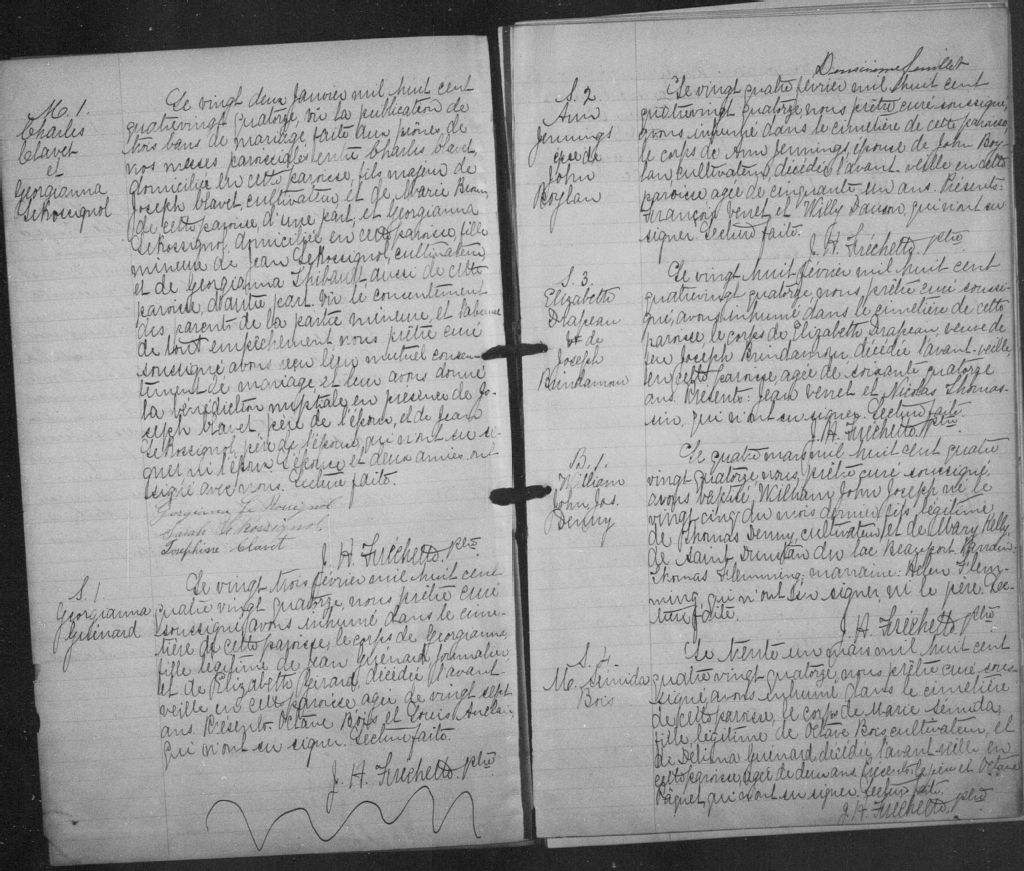 M. 1.
Charles
Clavet
et
Georgianna
LeRossignol
Le vingt deux Janvier mil huit cent
quatrevingt quatorze, vu la publication de
trois bans de mariage faite aux prônes de
nos messes paroissiales entre Charles Clavet
domicilié en cette paroisse, fils majeur de
Joseph Clavet, cultivateur et de Marie
de cette paroisse, d'une part, et Georgianna
LeRossignol, domiciliée en cette paroisse, fille
mineure de Jean LeRossignol, cultivateur,
et de Georgianna Thibault aussi de cette
paroisse, d'autre part. Vu le consentement
des parents de la partie mineure, et
de tout empêchement nous prêtre curé
soussigné avons reçu leur mutuel consen
tement de mariage et leur avons donné
la bénédiction nuptiale en présence de Jo-
seph Clavet, père de l'époux, et de Jean
LeRossignol, père de l'épouse, qui n'ont su si-
gner ni l'époux. L'épouse et deux amies ont
signé avec nous. Lecture faite.
Georgianna Le Rossignol
Sarah LeRossignol
Josephine Clavet
J. H. Fréchette ptre
S. 1.
Georgianna
Guénard
Le vingt trois février mil huit cent
quatre vingt quatorze, nous prêtre curé
soussigné, avons inhumé dans le cime-
tière de cette paroisse, le corps de Georgianna,
fille légitime de Jean Guénard, journalier
et de Elizabeth Gérard, décédée l'avant-
veille en cette paroisse agée de vingt sept
ans. Présents: Octave Bois et Louis
qui n'ont su signer. Lecture faite.
J. H. Fréchette ptre
Deuxième feuillet
S. 2.
Ann
Jennings
épse de
John
Boylan
Le vingt quatre février mil huit cent
quatrevingt quatorze nous prêtre curé soussigné,
avons inhumé dans le cimetière de cette paroisse,
le corps de Ann Jennings, épouse de John Boy-
lan, cultivateur, décédée l'avant-veille en cette
paroisse agée de cinquante un ans. Présents:
François Verret et Willy Dawson, qui n'ont su
signer. Lecture faite.
J. H. Fréchette ptre
S. 3.
Elizabeth
Drapeau
de
Joseph
Le vingt huit février mil huit cent
quatrevingt quatorze, nous, prêtre curé soussi-
gné, avons inhumé dans le cimetière de cette
paroisse le corps de Elizabeth Drapeau, veuve de
feu Joseph décédée l'avant-veille
en cette paroisse, agée de soixante quatorze
ans. Présents: Jean Verret et Nicolas Thomas-
sin, qui n'ont su signer. Lecture faite.
J. H. Fréchette ptre
B. 1.
William
John Jos.
Denny
Le quatre mars mil huit cent quatre
vingt quatorze, nous, prêtre curé soussigné
avons baptisé William John Joseph né le
vingt cinq du mois dernier fils légitime
de Thomas Denny, cultivateur, et de Mary Kelly,
de Saint Dunstan du lac Beauport. Parrain:
Thomas Flemming; marraine: Helen Flem-
ming, qui n'ont su signer, ni le père. Lec-
ture faite.
J. H. Fréchette ptre
S. 4.
M.
Bois
Le trente un mars mil huit cent
quatre vingt quatorze, nous prêtre curé sous-
signé, avons inhumé dans le cimetière
de cette paroisse, le corps de Marie
fille légitime de Octave Bois, cultivateur, et
de Délima Guénard, décédée l'avant-veille en
cette paroisse, agée de deux ans. Présents: le père et Octave
Paquet, qui n'ont su signer. Lecture faite.
J. H. Fréchette ptre